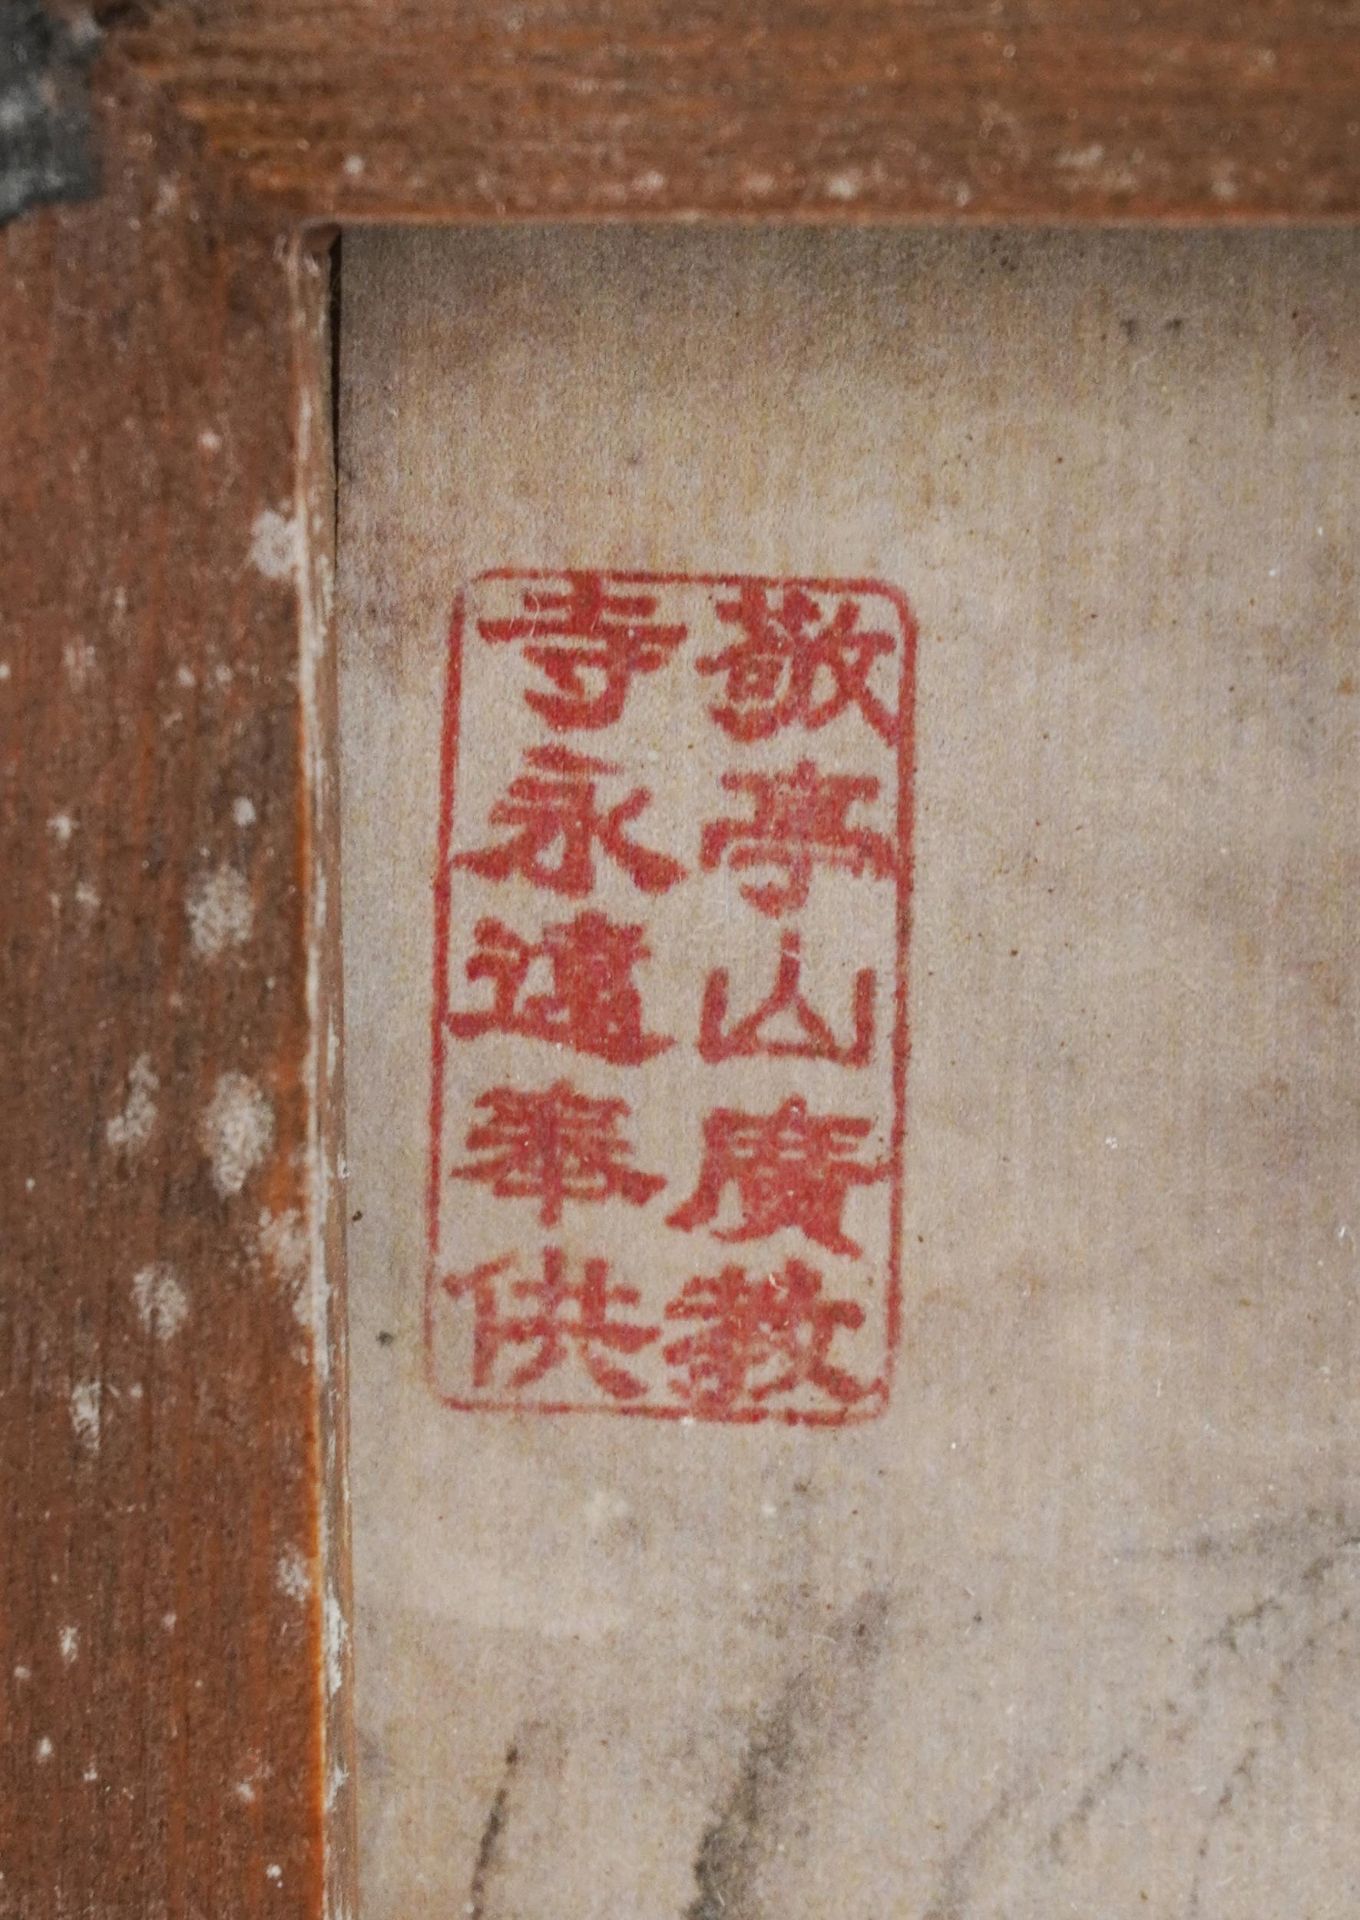 敬亭山廣教
寺永遠奉供